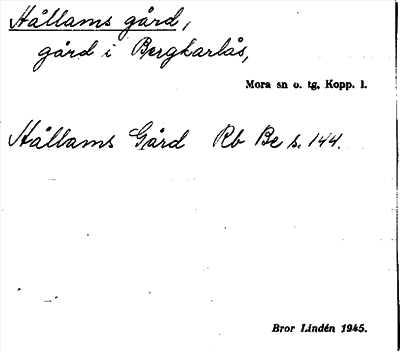 Hållams gård,
gård i Bergkarlås,
Mora sn o. tg, Kopp. l.
Hållams Gård Rb Be s. 144.
Bror Lindén 1945.